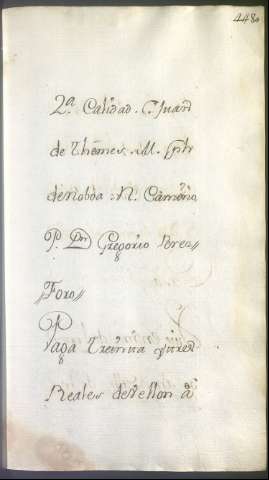 448
2ª Calidad. C. Juan
de Themes. M.
de Noboa. N. Camino
P. Dn Gregorio Bres"
"Foro"
Paga Treinta y tres
Reales de Vellon â